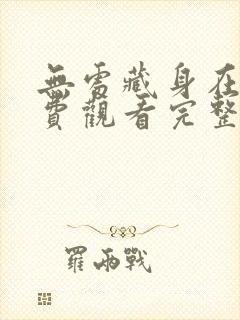 無處藏身在
費觀看完整
羅雨戰